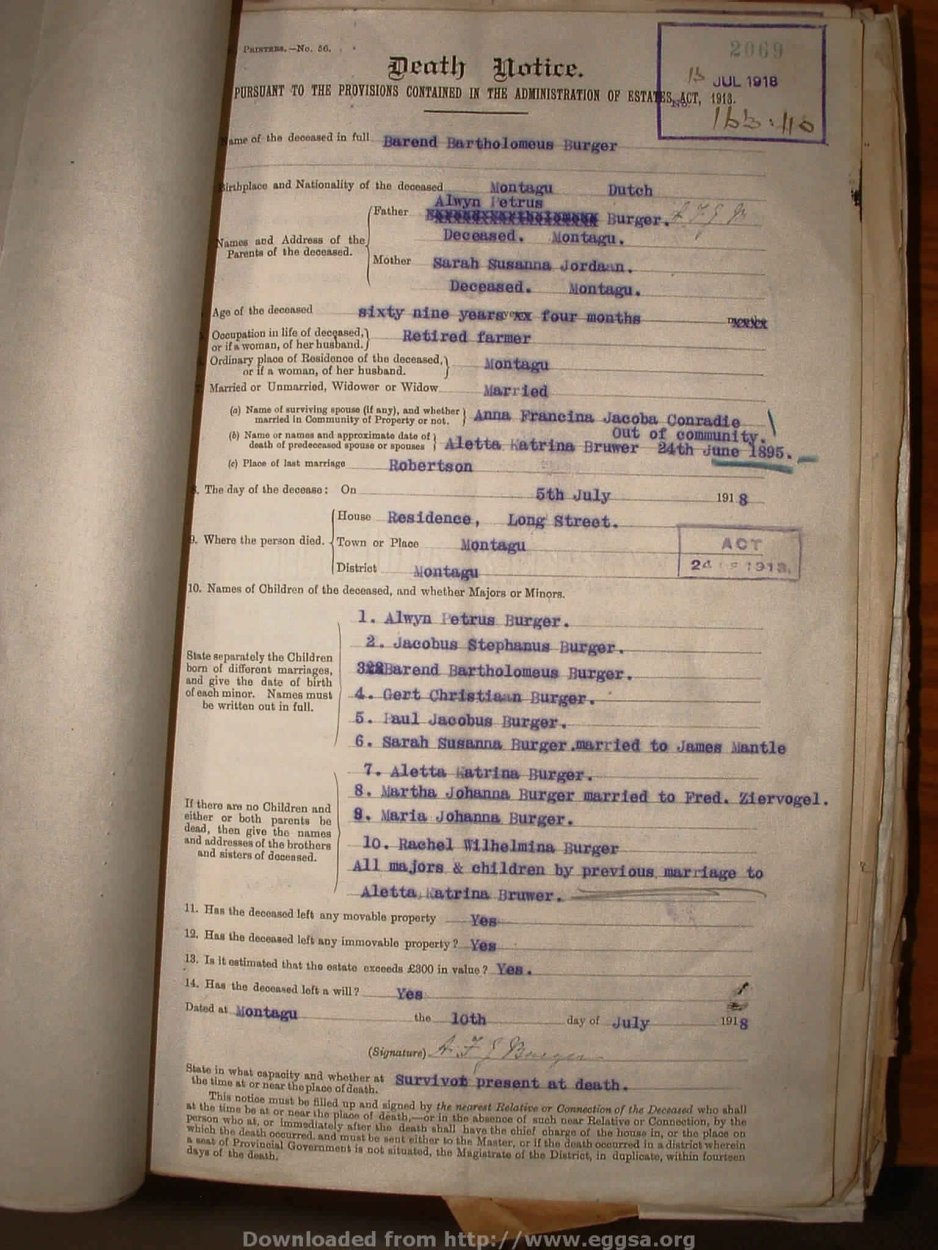 PRINTERS.—No. 56.
2069
15 JUL 1918
No.
163:410
Death Notice.
PURSUANT TO THE PROVISIONS CONTAINED IN THE ADMINISTRATION OF ESTATES ACT, 1913.
ame of the deceased in full Barend Bartholomeus Burger
Birthplace and Nationality of the deceased Montagu Dutch
Alwyn Petrus
Father Burger. A F J B
Deceased. Montagu.
Names and Address of the Parents of the deceased.
Mother Sarah Susanna Jordaan.
Deceased. Montagu.
Age of the deceased sixty nine years xx four months xxxx
Occupation in life of deceased, or if a woman, of her husband. Retired farmer
Ordinary place of Residence of the deceased, or if a woman, of her husband. Montagu
Married or Unmarried, Widower or Widow Married
(a) Name of surviving spouse (if any), and whether married in Community of Property or not. Anna Francina Jacoba Conradie
Out of community.
(b) Name or names and approximate date of death of predeceased spouse or spouses Aletta Katrina Bruwer 24th June 1895.
(c) Place of last marriage Robertson
8. The day of the decease: On 5th July 1918
9. Where the person died. House Residence, Long Street.
Town or Place Montagu
District Montagu
ACT
24 OF 1913.
10. Names of Children of the deceased, and whether Majors or Minors.
State separately the Children
born of different marriages,
and give the date of birth
of each minor. Names must
be written out in full.
1. Alwyn Petrus Burger.
2. Jacobus Stephanus Burger.
3 Barend Bartholomeus Burger.
4. Gert Christiaan Burger.
5. Paul Jacobus Burger.
6. Sarah Susanna Burger.married to James Mantle
7. Aletta Katrina Burger.
8. Martha Johanna Burger married to Fred. Ziervogel.
9. Maria Johanna Burger.
10. Rachel Wilhelmina Burger
All majors & children by previous marriage to
Aletta Katrina Bruwer.
If there are no Children and
either or both parents be
dead, then give the names
and addresses of the brothers
and sisters of deceased.
11. Has the deceased left any movable property Yes
12. Has the deceased left any immovable property? Yes
13. Is it estimated that the estate exceeds £300 in value? Yes.
14. Has the deceased left a will? Yes
Dated at Montagu the 10th day of July 1918
(Signature) A F J Burger
State in what capacity and whether at the time at or near the place of death. Survivor present at death.
This notice must be filled up and signed by the nearest Relative or Connection of the Deceased who shall
at the time be at or near the place of death,—or in the absence of such near Relative or Connection, by the
person who at, or immediately after the death shall have the chief charge of the house in, or the place on
which the death occurred, and must be sent either to the Master, or if the death occurred in a district wherein
a seat of Provincial Government is not situated, the Magistrate of the District, in duplicate, within fourteen
days of the death.
Downloaded from http://www.eggsa.org